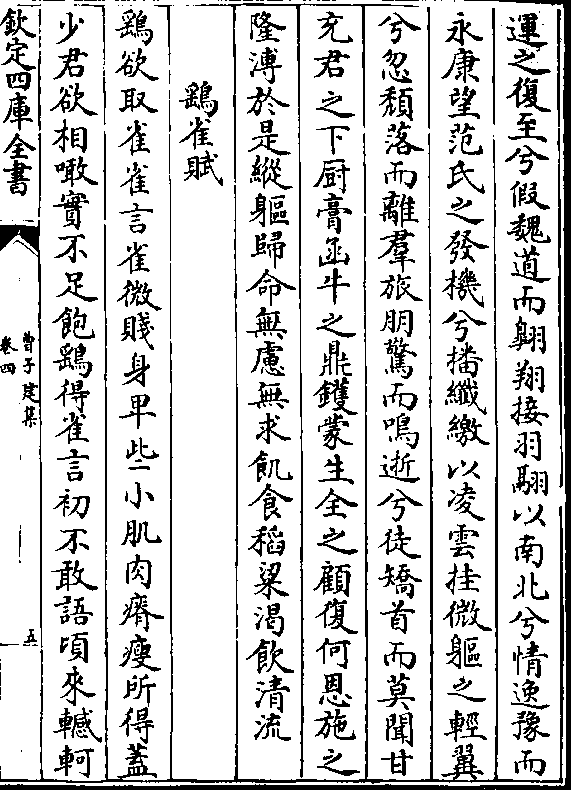 運之復至兮假魏道而翺翔接羽翮以南北兮情逸豫而
永康望范氏之發機兮播纖繳以凌雲挂微軀之輕翼
兮忽頹落而離羣旅朋驚而鳴逝兮徒矯首而莫聞甘
充君之下厨膏函牛之鼎鑊蒙生全之顧復何恩施之
隆溥於是縱軀歸命無慮無求飢食稻粱渴飲清流
鷂雀賦
鷂欲取雀雀言雀微賤身卑些小肌肉瘠瘦所得蓋
少君欲相噉實不足飽鷂得雀言初不敢語頃來轗軻
欽定四庫全書
曹子建集
卷四
五